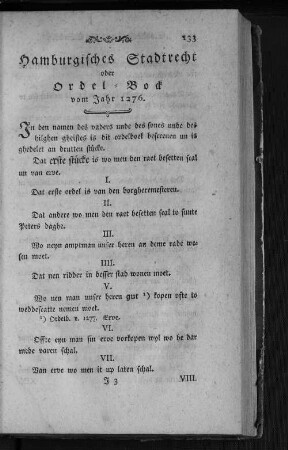 133
Hamburgisches Stadtrecht
oder
Ordel-Bock
vom Jahr 1276.
In den namen des vaders unde des sones unde des
hilghen gheistes is dit ordelboek beserenen un is
ghedelet an drutten stücke.
Dat erste stücke is wo men den raet besetten scal
un van erve.
I.
Dat erste ordel is van den borgheremesteren.
II.
Dat andere wo men den raet besetten scal to sunte
Peters daghe.
III.
Wo neyn amptman unser heren an deme rade we-
sen moet.
IIII.
Dat nen ridder in desser stad wonen moet.
V.
Wo nen man unser heren gut ¹) kopen ofte to
weddescatte nemen moet.
¹) Ordelb. v. 1277. Erve.
VI.
Offte eyn man sin erve vorkopen wyl wo he dar
mede varen schal.
VII.
Van erve wo men it up laten schal.
I 3
VIII.